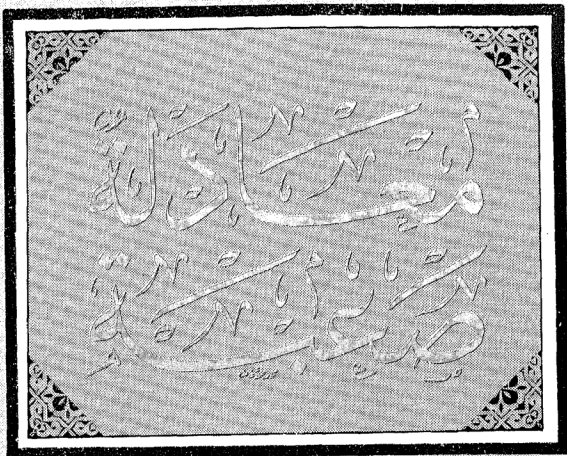 معادلة
صعبة